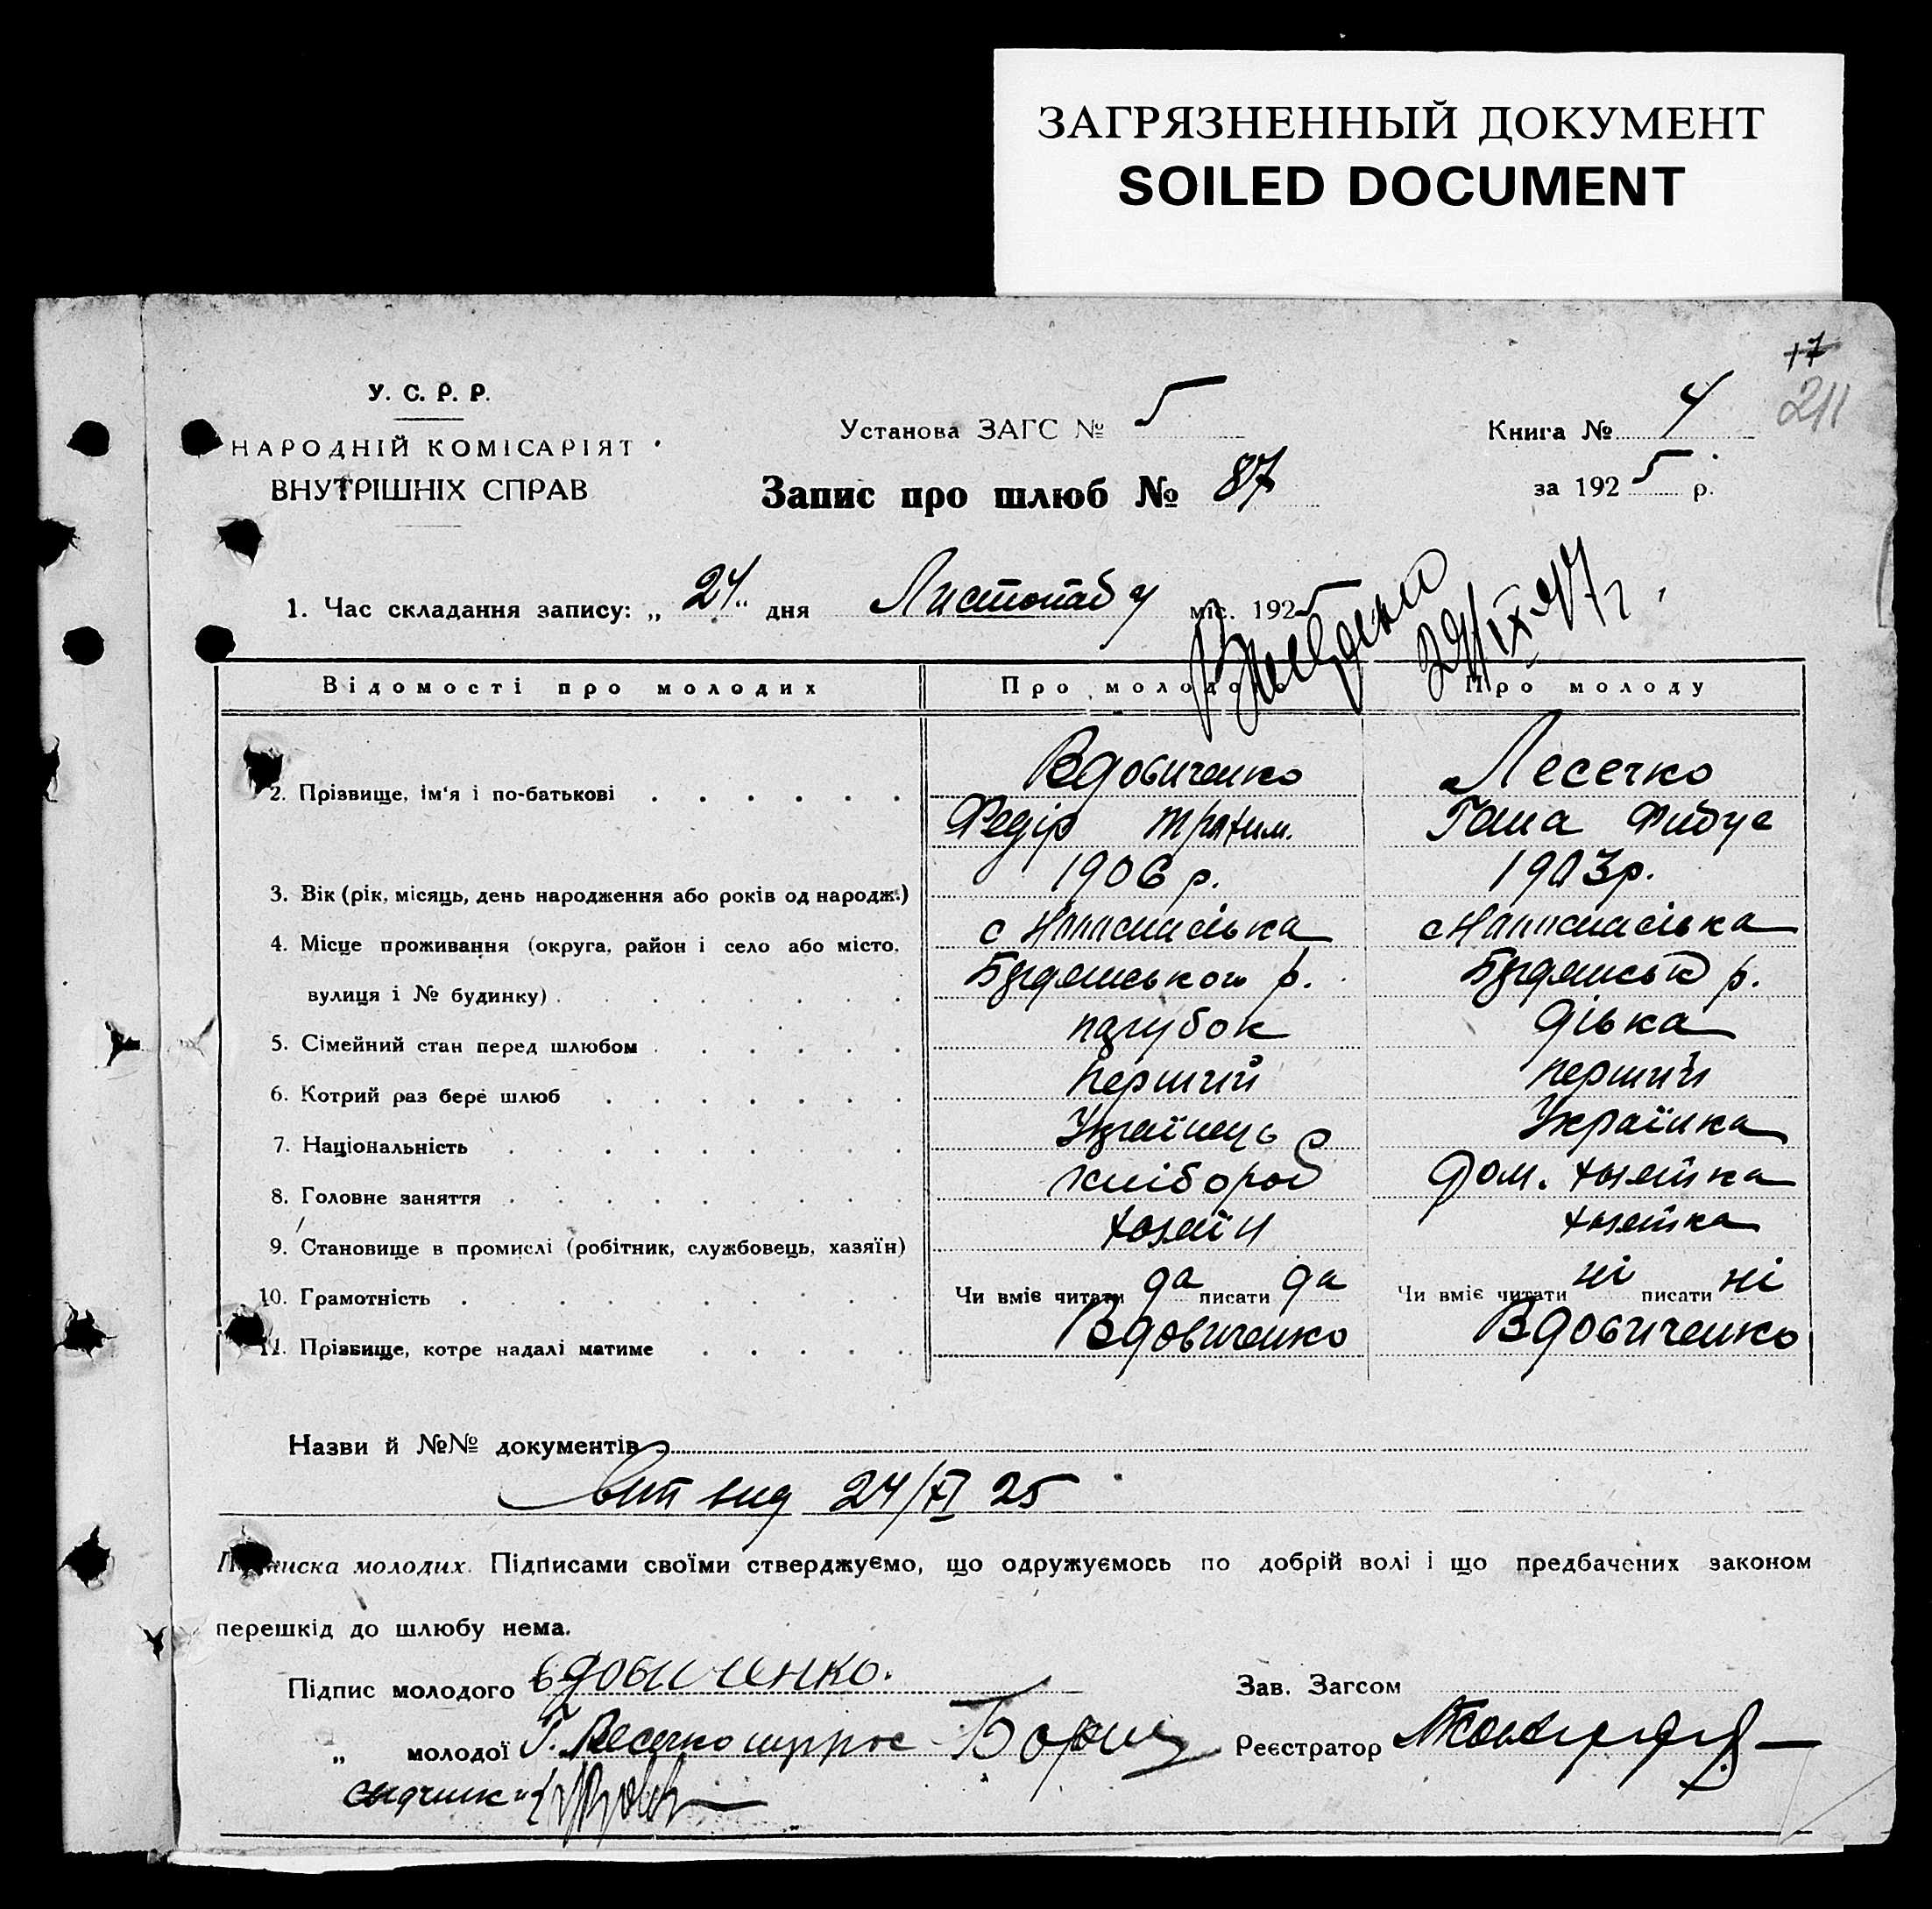 ЗАГРЯЗНЕННЫЙ ДОКУМЕНТ
SOILED DOCUMENT
17
211
У. С. Р. Р.
НАРОДНІЙ КОМІСАРІЯТ
ВНУТРІШНІХ СПРАВ
Установа ЗАГС № 5
Книга № 4
за 1925 р.
Запис про шлюб № 87
1. Час складання запису: „24" дня Листопаду міс. 1925
29/IX 47 г.
Відомості про молодих Про молодого Про молоду
2. Прізвище, ім'я і по-батькові Вдовиченко Лесечко
Федір Трохим. Ганна
3. Вік (рік, місяць, день народження або років од народж.) 1906 р. 1903 р.
4. Місце проживання (округа, район і село або місто,
вулиця і № будинку)
5. Сімейний стан перед шлюбом парубок дівка
6. Котрий раз бере шлюб перший перший
7. Національність Українець Українка
8. Головне заняття хлібороб дом. хазяйка
9. Становище в промислі (робітник, службовець, хазяїн) хазяїн хазяйка
10. Грамотність Чи вміє читати да писати да Чи вміє читати ні писати ні
11. Прізвище, котре надалі матиме Вдовиченко Вдовиченко
Назви й №№ документів
вид 24/XI 25
Підписка молодих. Підписами своїми стверджуємо, що одружуємось по добрій волі і що предбачених законом
перешкід до шлюбу нема.
Підпис молодого Вдовиченко. Зав. Загсом
„ молодої Г. Лесечко Реєстратор